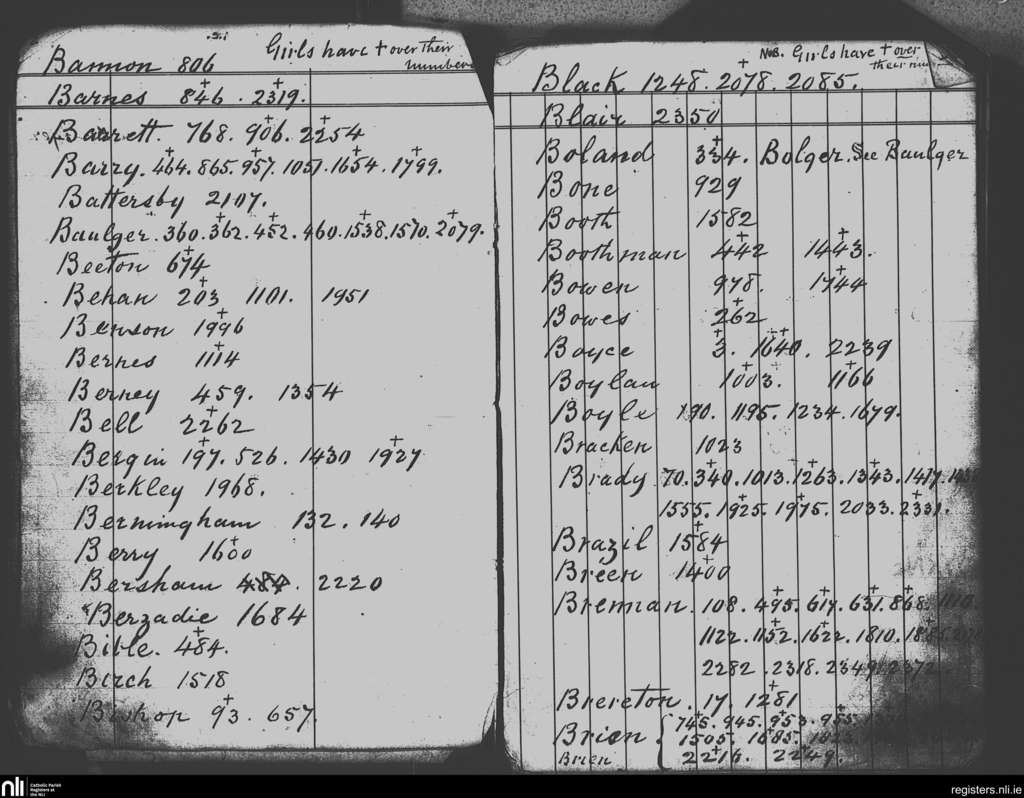 Girls have + over their
numbers
Bannon 806
Barnes 846+ . 2319+.
Barrett. 768. 906+. 2254+
Barry. 464+. 865. 957+. 1051. 1654+. 1799+.
Battersby 2107.
Baulger. 360. 362+. 452+. 460. 1538+. 1570. 2079+.
Beeton 674+
Behan 203+ 1101. 1951
Benson 1996+
Bernes 1114+
Berney 459. 1354
Bell 2262+
Bergin 197+. 526. 1430 1927+
Berkley 1968.
Bermingham 132. 140
Berry 1600+
Bersham 484. 2220
Berzadie 1684
Bible. 484+.
Birch 1518
Bishop 93+. 657.
N.B. Girls have + over
their
Black 1248. 2078+. 2085.
Blair 2350
Boland 334+. Bolger. See Baulger
Bone 929
Booth 1582
Boothman 442+ 1443+.
Bowen 978. 1744+
Bowes 262+
Boyce 3+. 1640+. 2239
Boylan 1003+. 1166+
Boyle 190. 1195. 1234. 1679.
Bracken 1023
Brady 70. 340+. 1013. 1263+. 1343+. 1417.
1555. 1925+. 1975+. 2033. 2331+.
Brazil 1584+
Breen 1400+
Brennan. 108. 495+. 617+. 631+. 868+.
1122. 1152+. 1622+. 1810.
2282. 2318. 2349. 2372
Brereton. 17. 1281+
Brien. 745. 945. 953+.
1505. 1685.
Brien 2216+. 2249.
nli Catholic Parish
Registers at
the NLI
registers.nli.ie